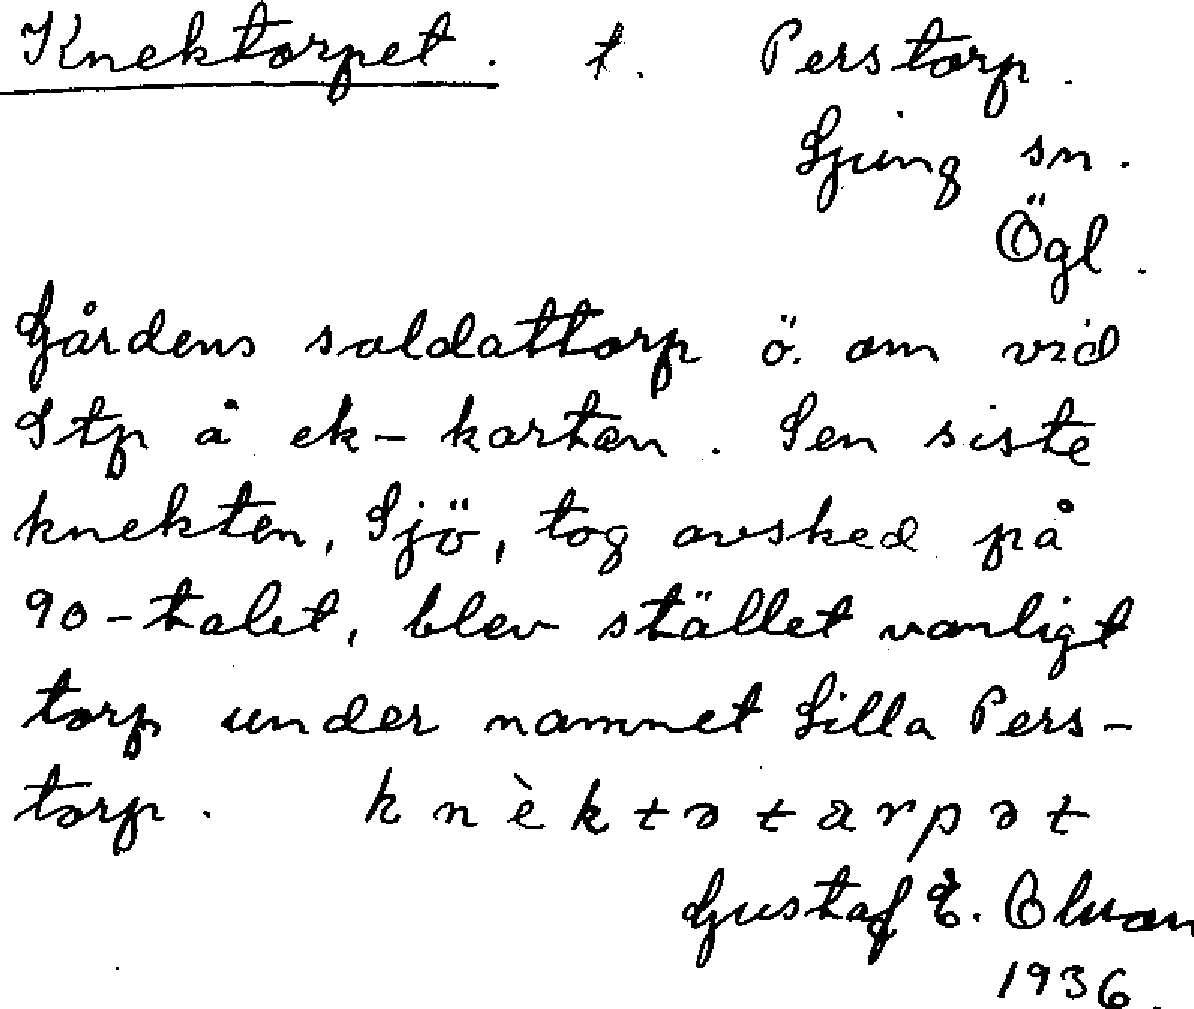 Knektorpet. t. Perstorp.
Ljung sn.
Ögl.
Gårdens soldattorp ö. om vid
Stp å ek-kartan. Sen siste
knekten, Sjö, tog avsked på
90-talet, blev stället vanligt
torp under namnet Lilla Pers-
torp. k n è k t ə t a r p ə t
Gustaf E.
1936.